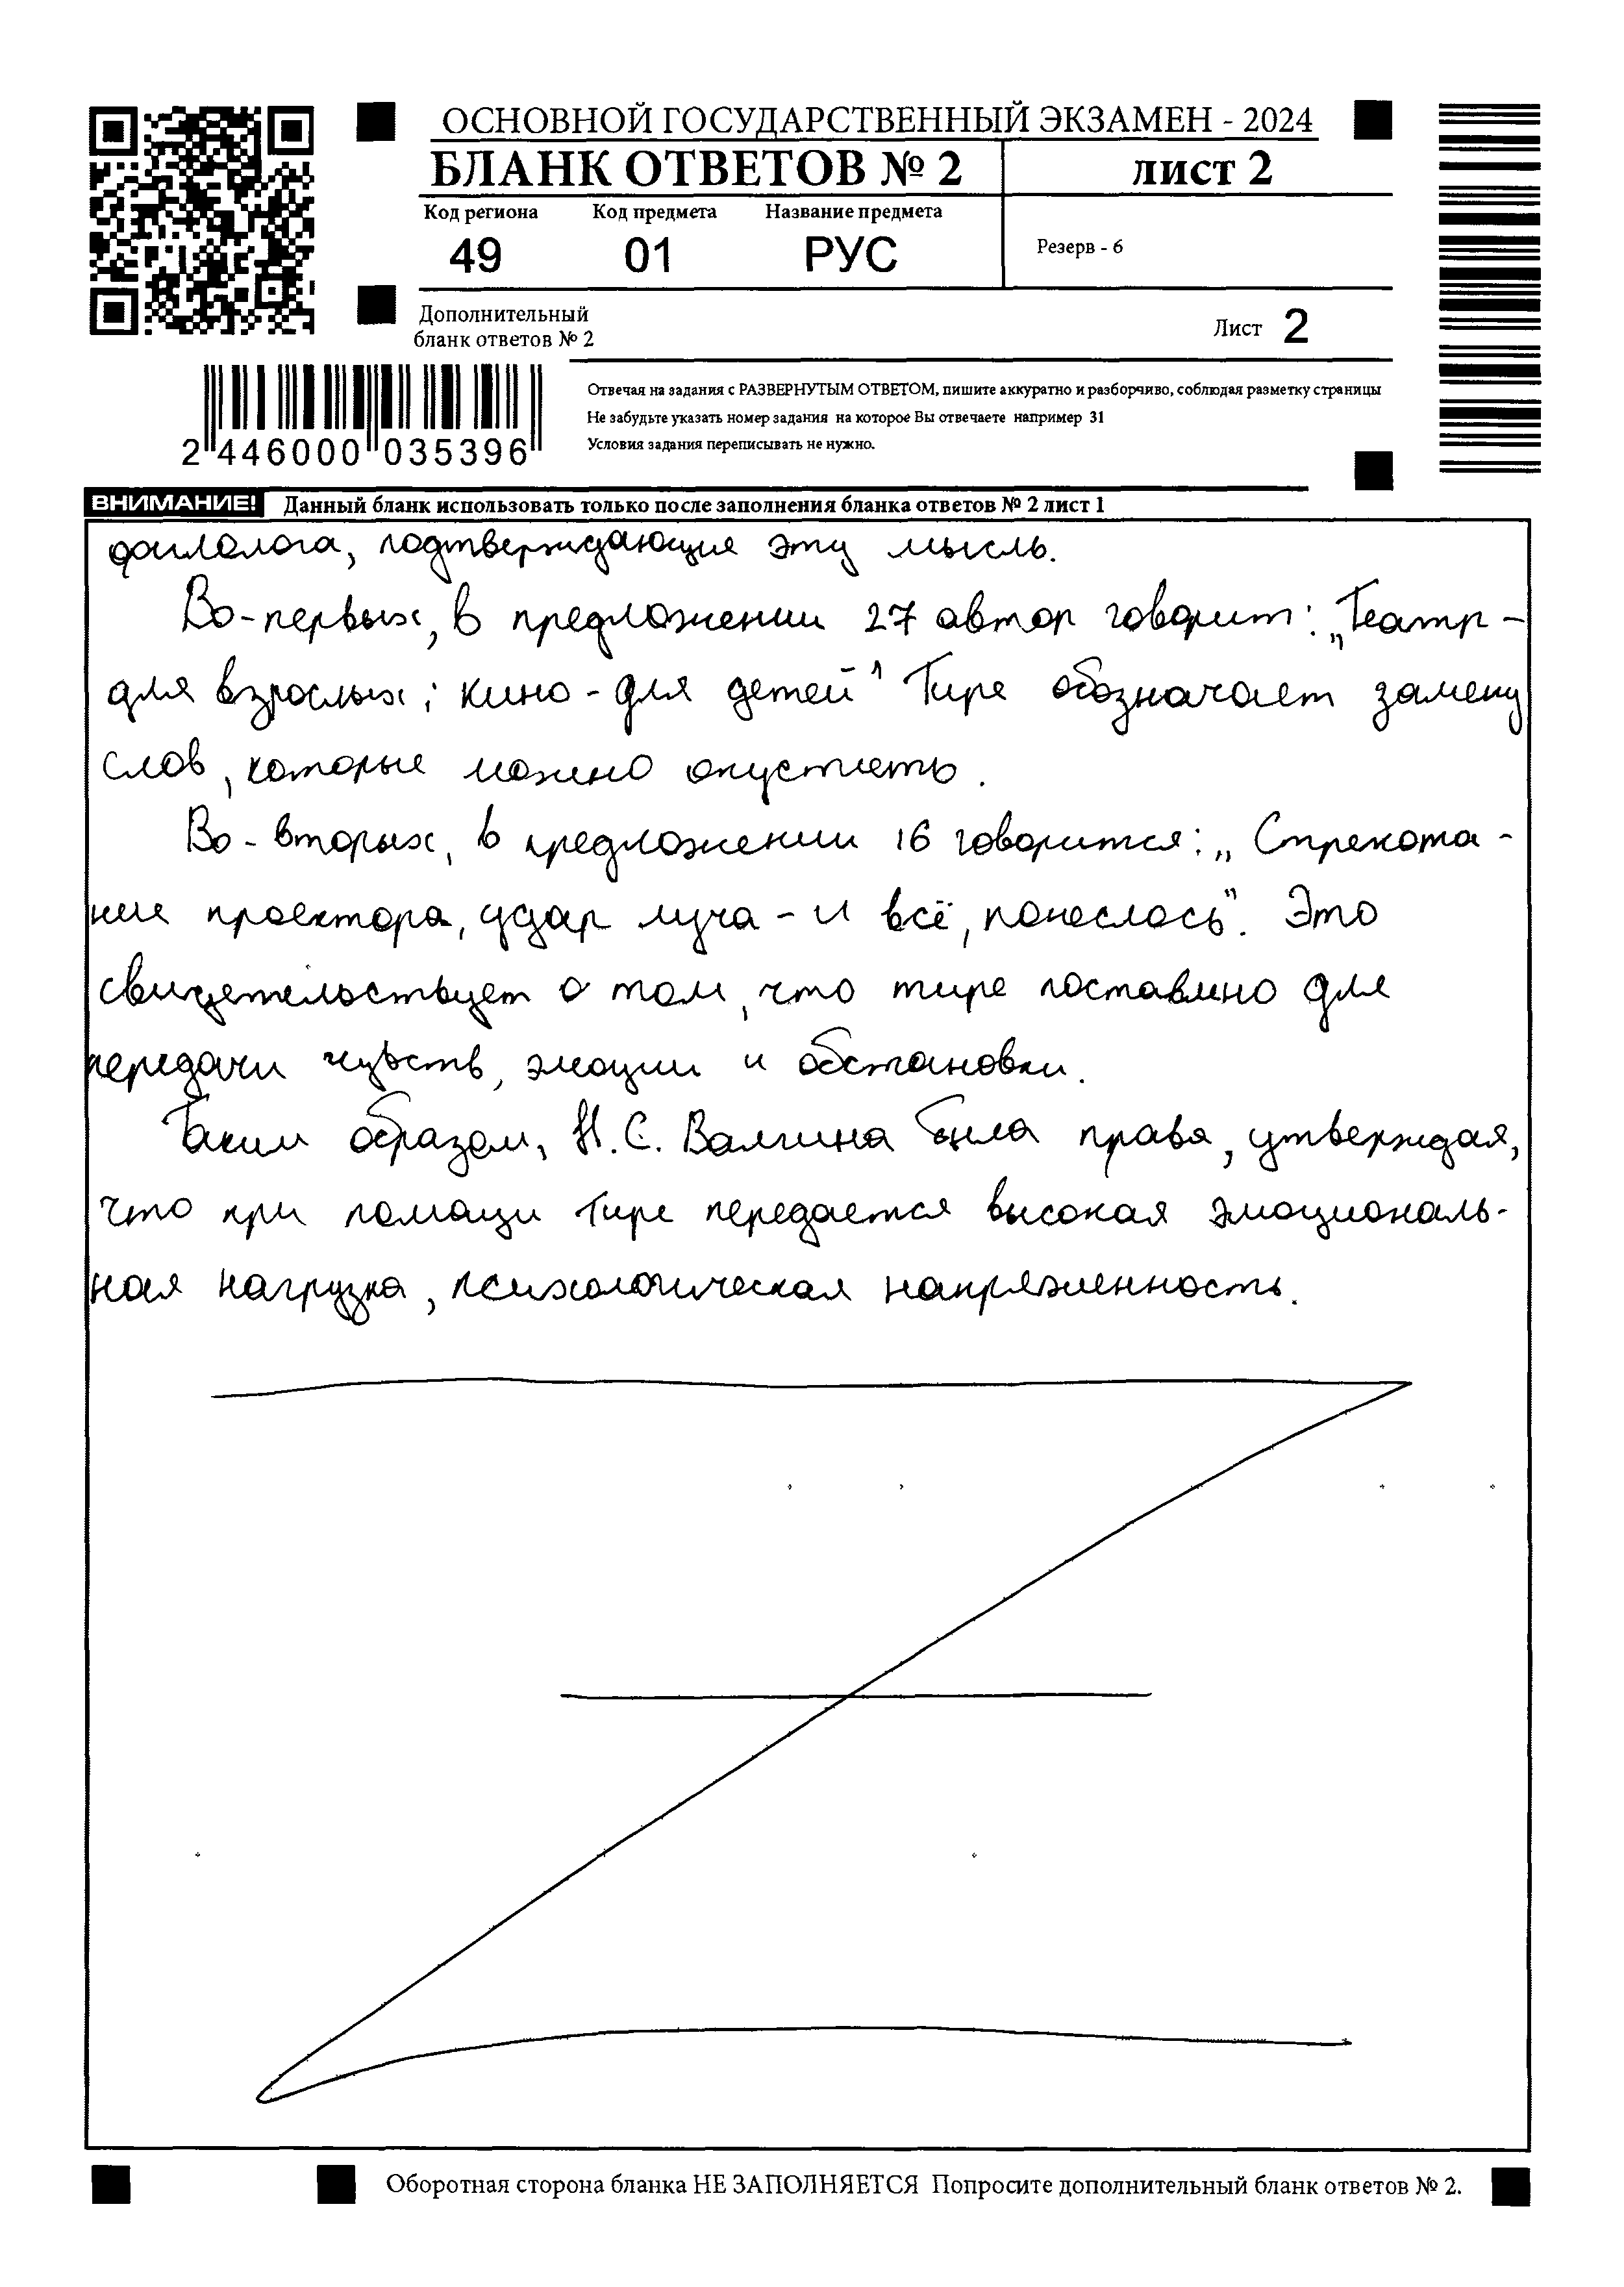 ОСНОВНОЙ ГОСУДАРСТВЕННЫЙ ЭКЗАМЕН - 2024
БЛАНК ОТВЕТОВ № 2
лист 2
Код региона Код предмета Название предмета
49 01 РУС
Резерв - 6
Дополнительный
бланк ответов № 2
Лист 2
Отвечая на задания с РАЗВЕРНУТЫМ ОТВЕТОМ, пишите аккуратно и разборчиво, соблюдая разметку страницы
Не забудьте указать номер задания на которое Вы отвечаете например 31
Условия задания переписывать не нужно.
2 446000 035396
ВНИМАНИЕ! Данный бланк использовать только после заполнения бланка ответов № 2 лист 1
филолога, подтверждающие эту мысль.
Во-первых, в предложении 27 автор говорит: „Театр -
для взрослых; кино - для детей" Тире обозначает замену
слов, которые можно опустить.
Во-вторых, в предложении 16 говорится: „Стрекота-
ние проектора, удар луча - и всё, понеслось". Это
свидетельствует о том, что тире поставлено для
передачи чувств, эмоции и обстановки.
Таким образом, Н.С. Валгина была права, утверждая,
что при помощи тире передается высокая эмоциональ-
ная нагрузка, психологическая напряженность.
Оборотная сторона бланка НЕ ЗАПОЛНЯЕТСЯ Попросите дополнительный бланк ответов № 2.